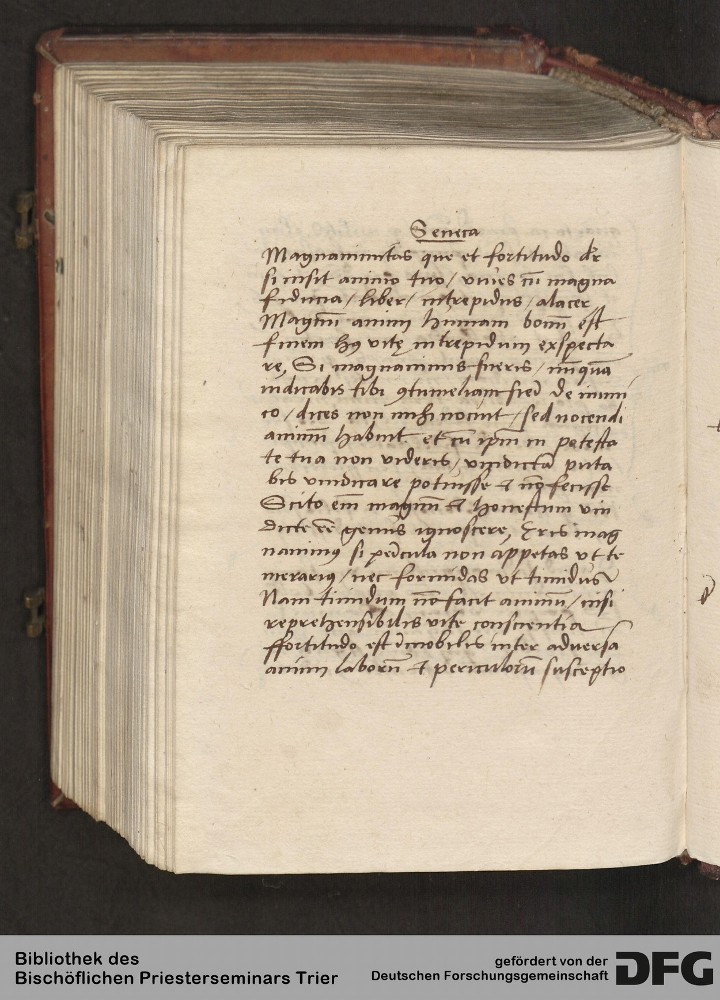 Seneca
Magnanimitas que et fortitudo dr̄
si insit animo tuo / viues cū magna
fiducia / liber / intrepidus / alacer
Magnū animi humani bonū est
finem huꝯ vitę intrepidum exspecta
re, Si magnanimus fueris / nūquā
iudicabis tibi ꝯtumeliam fieri de inimi
co / dices non mihi nocuit / sed nocendi
animū habuit et cū ipm̄ in potesta
te tua non videris / vindictā puta
bis vindicare potuisse & nō fecisse
Scito em̄ magnū & honestum vin
dicte eē genus ignoscere, Eris mag
nanimꝯ si pericula non appetas vt te
merariꝯ / nec formidas vt timidus
Nam timidum nō facit animū / nisi
reprehensibilis vite conscientia
ffortitudo est īmobilis inter aduersa
animi laborū & periculorū susceptio
Bibliothek des
Bischöflichen Priesterseminars Trier
gefördert von der
Deutschen Forschungsgemeinschaft DFG